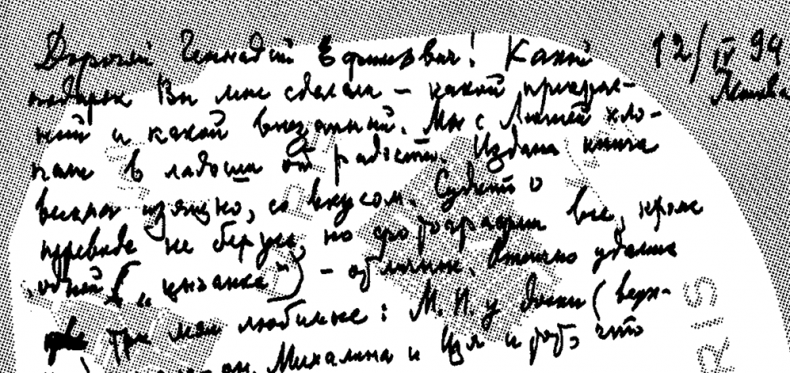 Дорогой Геннадий Ефимович! Какой 12/IV 94
подарок Вы мне сделали – какой прекрас- Москва
ный и какой внезапный. Мы с Люшей хло-
пали в ладоши от радости. Издана книга
весьма изящно, со вкусом. Судить о
переводе не берусь, но фотографии все, кроме
одной („цыганка“) – отличны. Особенно удались
три мои любимые: М. П. у доски (верх-
Михалина и Изя и что
RIS